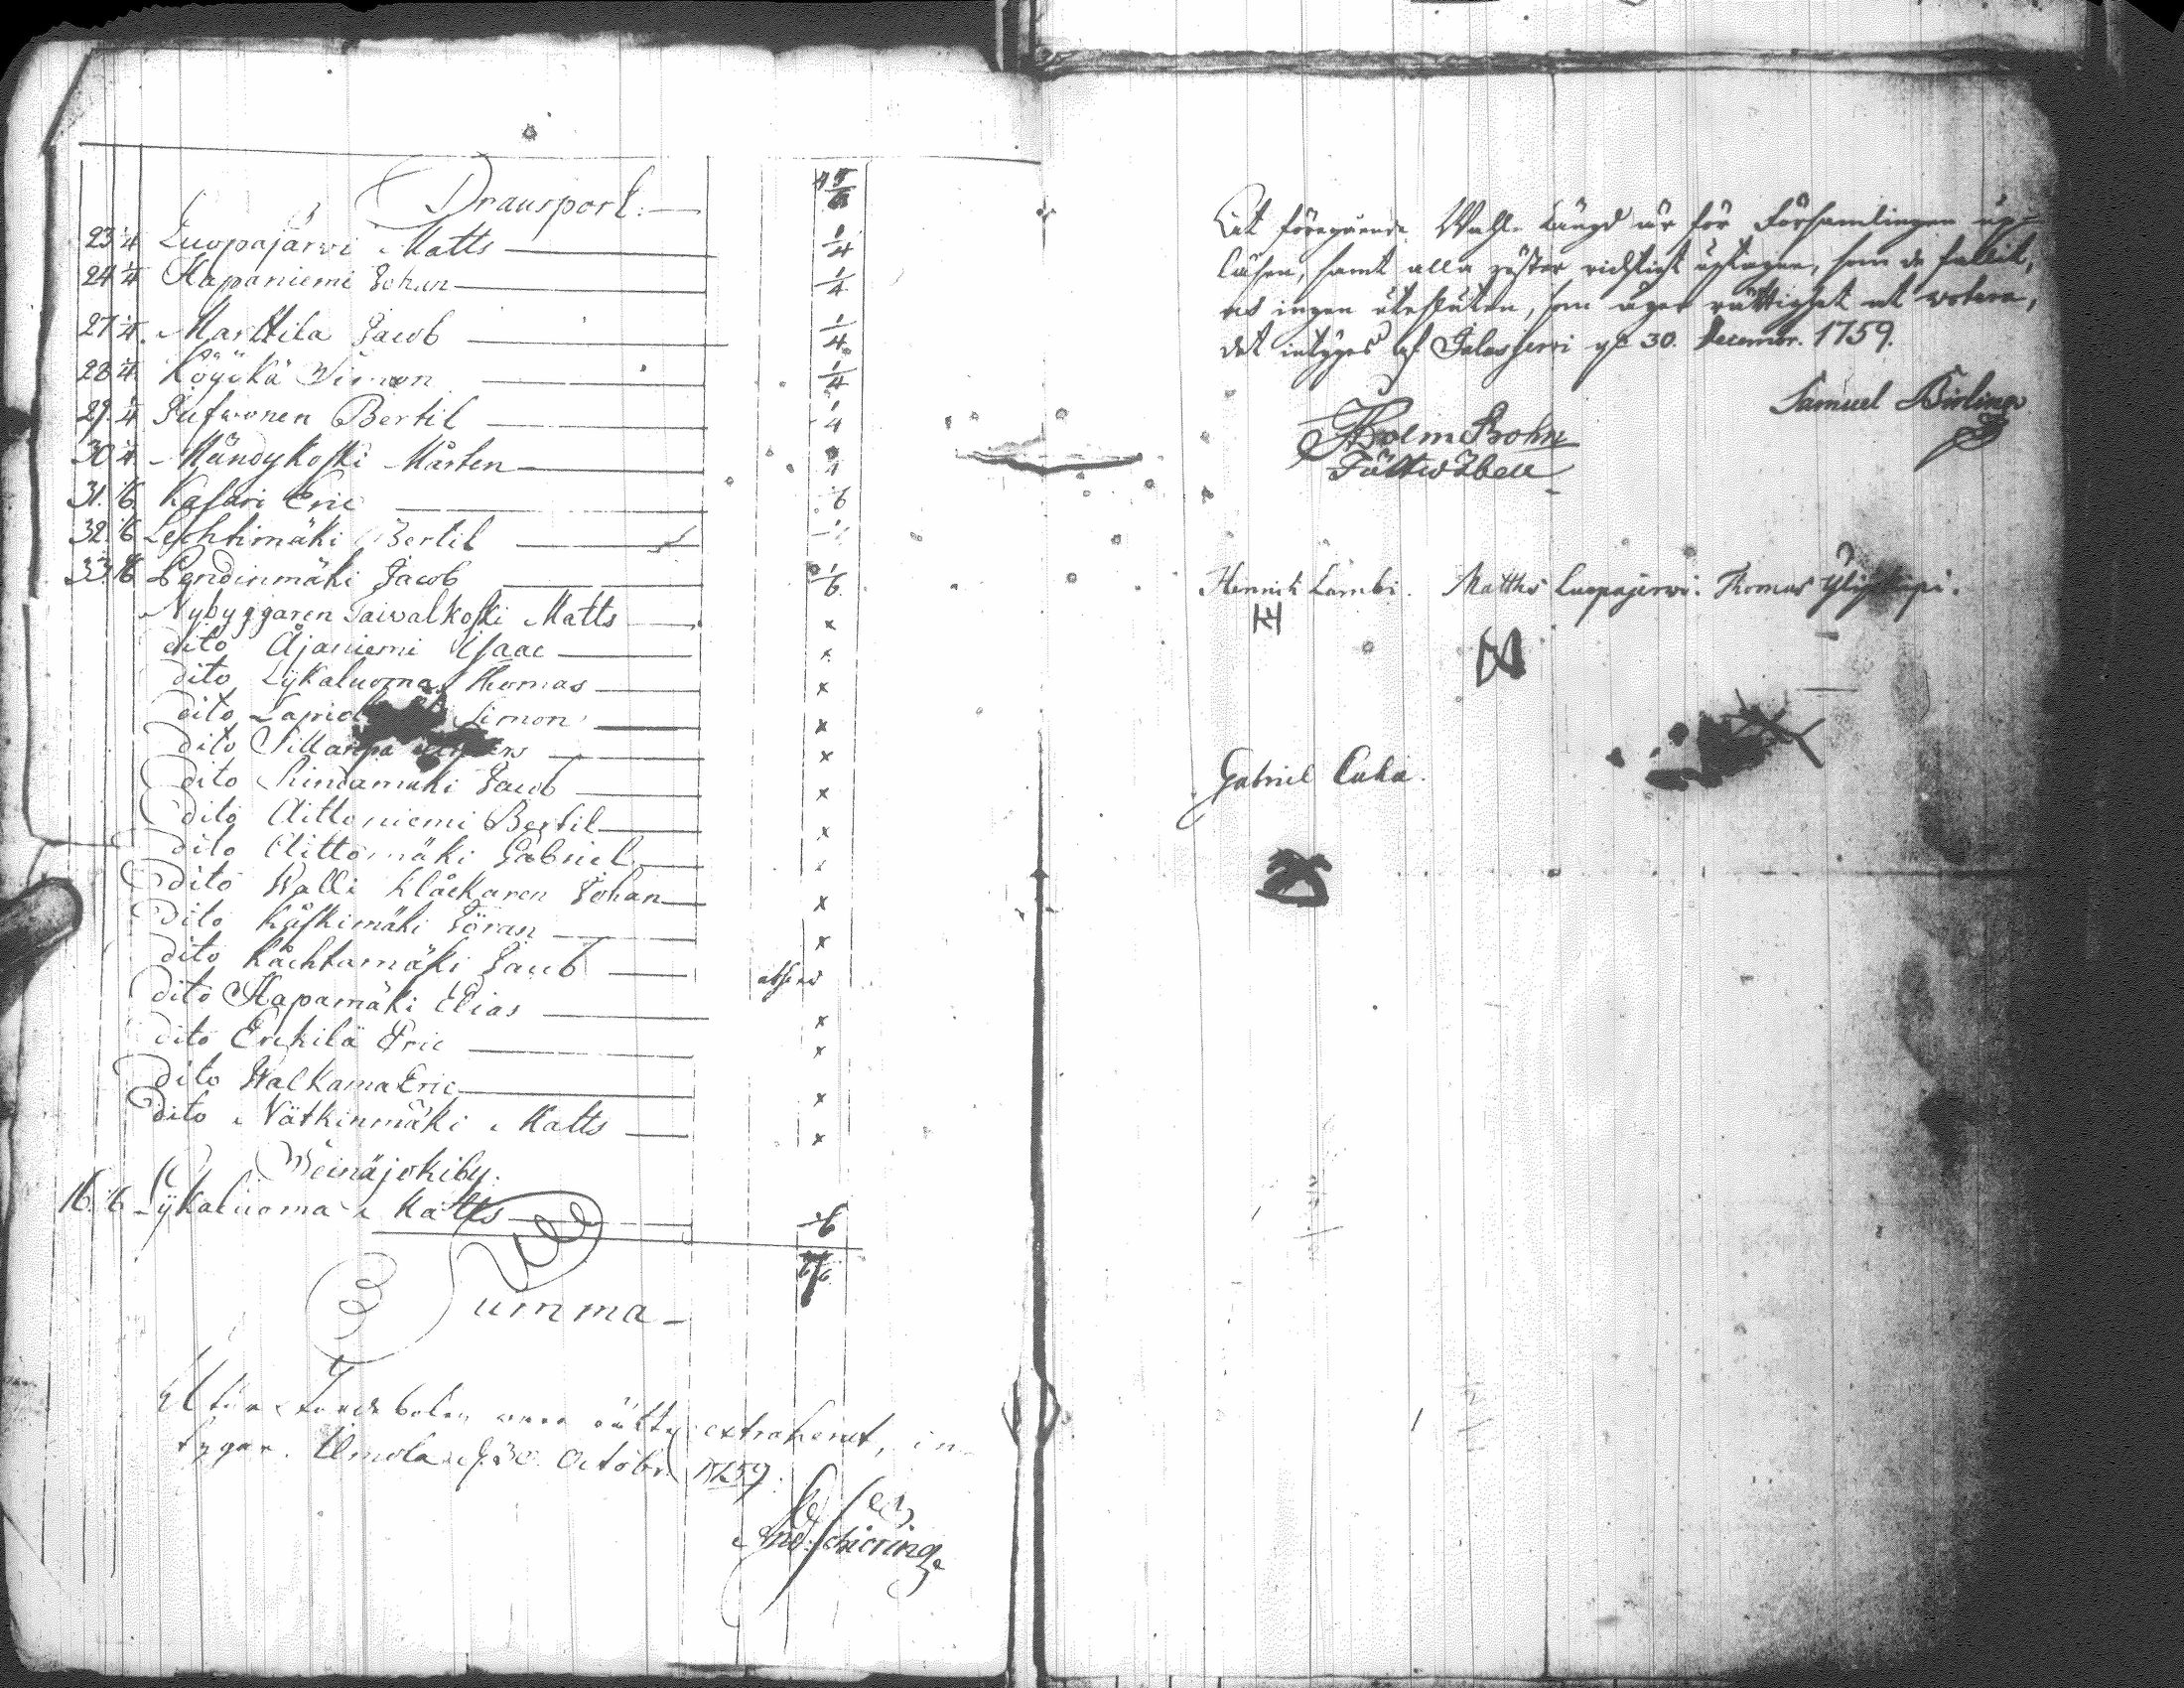 Transport.
23 1/4 Luopajärwi Matts 1/4
24 1/4 Hapaniemi Johan 1/4
27 1/4 Marttila Jacob 1/4
28 1/4 Köykä Simon 1/4
29 1/4 Jufwonen Bertil 1/4
30 1/4 Mändykoski Mårten 1/4
31. 1/6 Kasari Eric 1/6
32. 1/6 Lechtimäki Bertil
33. 1/6 Pendinmäki Jacob 1/6
Nybyggaren Taiwalkoski Matts x
dito Ajaniemi Isaac x
dito Lykaluoma Thomas x
dito Simon x
dito Sillanpä x
dito Rindamäki Jacob x
dito Aittoniemi Bertil x
dito Aittomäki Gabriel x
dito Walli Klåckaren Johan x
dito Käskimäki Göran x
dito Jacob
dito Hapamäki Elias x
dito Erckilä Eric x
dito Walkama Eric x
dito Nätkinmäki Matts x
Seinäjoki by.
16. 1/6 Lykaluoma Matts 1/6
Summa
At extraherat, in-
tygar. Ilmola d. 30. Octobr. 1759.
And: Schering
At föregående Wahl Längd är för Församlingen up-
läsen, samt alla röster richtigt uptagne, som de fallit,
och ingen utesluten, som äger rättighet at votera,
det intyges af Jalasjerwi d. 30. Decembr. 1759.
Samuel
Holm Bohm
Fältwäbell
Hennich Lambi. Matths Luopajerwi. Thomas
Gabriel